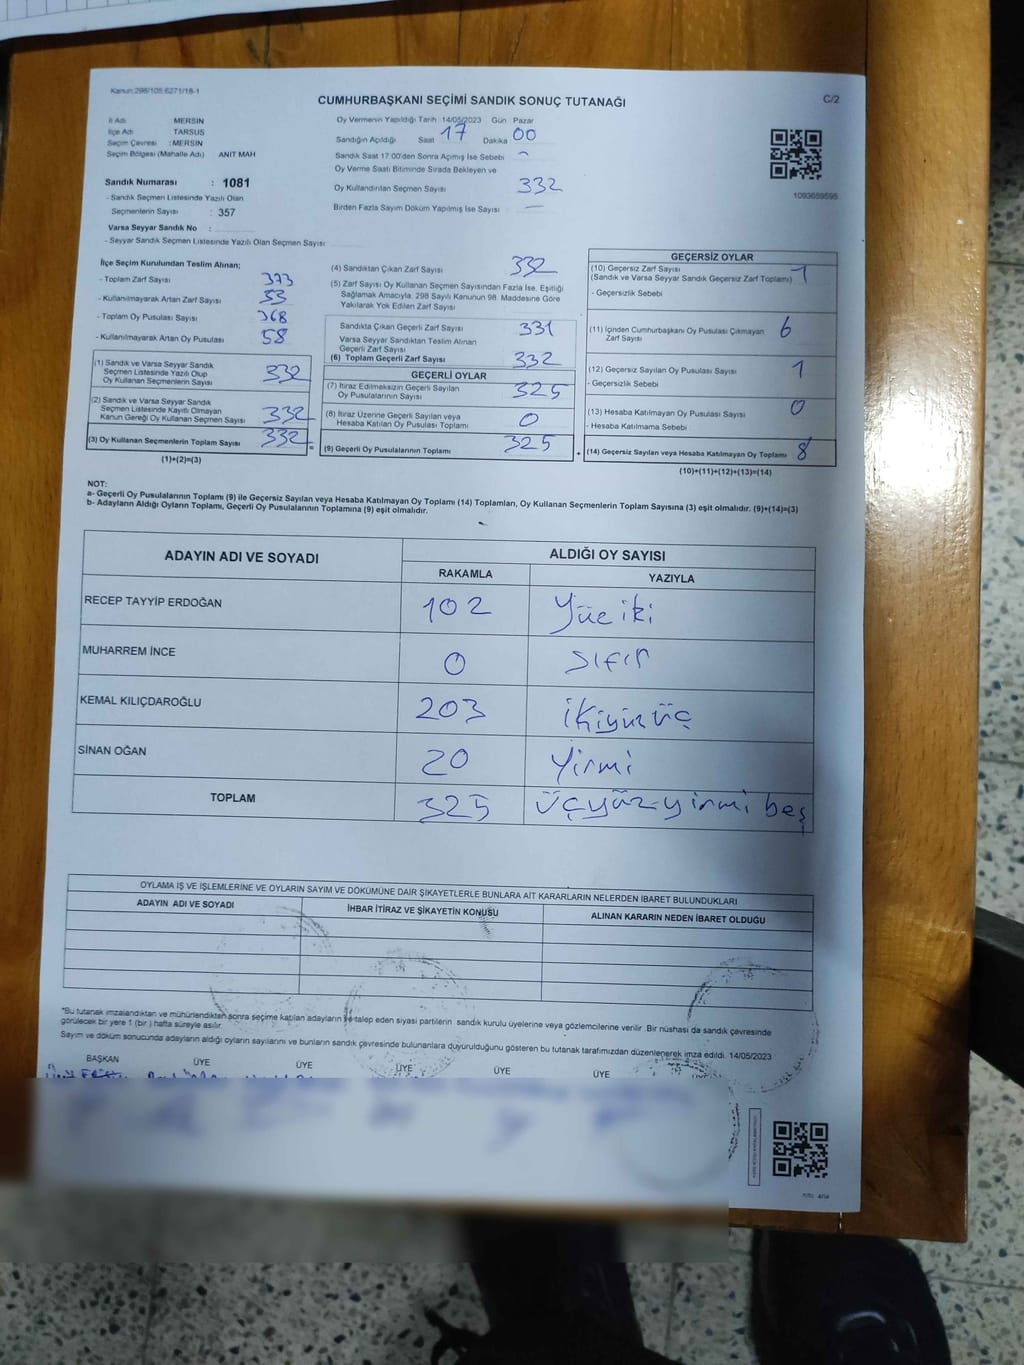 Kanun:298/105 6271/18-1
CUMHURBAŞKANI SEÇİMİ SANDIK SONUÇ TUTANAĞI
C/2
İl Adı MERSİN
İlçe Adı TARSUS
Seçim Çevresi :MERSİN
Seçim Bölgesi (Mahalle Adı) ANIT MAH
Sandık Numarası : 1081
- Sandık Seçmen Listesinde Yazılı Olan
Seçmenlerin Sayısı : 357
Varsa Seyyar Sandık No :
- Seyyar Sandık Seçmen Listesinde Yazılı Olan Seçmen Sayısı
Oy Vermenin Yapıldığı Tarih 14/05/2023 Gün Pazar
Sandığın Açıldığı Saat 17 Dakika 00
Sandık Saat 17:00'den Sonra Açımış İse Sebebi
Oy Verme Saati Bitiminde Sırada Bekleyen ve
Oy Kullandırılan Seçmen Sayısı 332
Birden Fazla Sayım Döküm Yapılmış İse Sayısı —
1093659595
İlçe Seçim Kurulundan Teslim Alınan;
- Toplam Zarf Sayısı 373
- Kullanılmayarak Artan Zarf Sayısı 33
- Toplam Oy Pusulası Sayısı 368
- Kullanılmayarak Artan Oy Pusulası 58
(1) Sandık ve Varsa Seyyar Sandık
Seçmen Listesinde Yazılı Olup
Oy Kullanan Seçmenlerin Sayısı 332
(2) Sandık ve Varsa Seyyar Sandık
Seçmen Listesinde Kayıtlı Olmayan
Kanun Gereği Oy Kullanan Seçmen Sayısı 332
(3) Oy Kullanan Seçmenlerin Toplam Sayısı 332
(1)+(2)=(3)
(4) Sandıktan Çıkan Zarf Sayısı 332
(5) Zarf Sayısı Oy Kullanan Seçmen Sayısından Fazla İse, Eşitliği
Sağlamak Amacıyla, 298 Sayılı Kanunun 98. Maddesine Göre
Yakılarak Yok Edilen Zarf Sayısı
Sandıkta Çıkan Geçerli Zarf Sayısı 331
Varsa Seyyar Sandıktan Teslim Alınan
Geçerli Zarf Sayısı
(6) Toplam Geçerli Zarf Sayısı 332
GEÇERLİ OYLAR
(7) İtiraz Edilmeksizin Geçerli Sayılan
Oy Pusulalarının Sayısı 325
(8) İtiraz Üzerine Geçerli Sayılan veya
Hesaba Katılan Oy Pusulası Toplamı 0
= (9) Geçerli Oy Pusulalarının Toplamı 325 +
GEÇERSİZ OYLAR
(10) Geçersiz Zarf Sayısı 1
(Sandık ve Varsa Seyyar Sandık Geçersiz Zarf Toplamı)
- Geçersizlik Sebebi
(11) İçinden Cumhurbaşkanı Oy Pusulası Çıkmayan 6
Zarf Sayısı
(12) Geçersiz Sayılan Oy Pusulası Sayısı 1
- Geçersizlik Sebebi
(13) Hesaba Katılmayan Oy Pusulası Sayısı 0
- Hesaba Katılmama Sebebi
(14) Geçersiz Sayılan veya Hesaba Katılmayan Oy Toplamı 8
(10)+(11)+(12)+(13)=(14)
NOT:
a- Geçerli Oy Pusulalarının Toplamı (9) ile Geçersiz Sayılan veya Hesaba Katılmayan Oy Toplamı (14) Toplamları, Oy Kullanan Seçmenlerin Toplam Sayısına (3) eşit olmalıdır. (9)+(14)=(3)
b- Adayların Aldığı Oyların Toplamı, Geçerli Oy Pusulalarının Toplamına (9) eşit olmalıdır.
ADAYIN ADI VE SOYADI ALDIĞI OY SAYISI
RAKAMLA YAZIYLA
RECEP TAYYİP ERDOĞAN 102 Yüz iki
MUHARREM İNCE 0 sıfır
KEMAL KILIÇDAROĞLU 203 ikiyüz üç
SİNAN OĞAN 20 Yirmi
TOPLAM 325 üçyüz yirmi beş
OYLAMA İŞ VE İŞLEMLERİNE VE OYLARIN SAYIM VE DÖKÜMÜNE DAİR ŞİKAYETLERLE BUNLARA AİT KARARLARIN NELERDEN İBARET BULUNDUKLARI
ADAYIN ADI VE SOYADI İHBAR İTİRAZ VE ŞİKAYETİN KONUSU ALINAN KARARIN NEDEN İBARET OLDUĞU
*Bu tutanak imzalandıktan ve mühürlendikten sonra seçime katılan adayların ve talep eden siyasi partilerin sandık kurulu üyelerine veya gözlemcilerine verilir. Bir nüshası da sandık çevresinde
görülecek bir yere 1 (bir) hafta süreyle asılır.
Sayım ve döküm sonucunda adayların aldığı oyların sayılarını ve bunların sandık çevresinde bulunanlara duyurulduğunu gösteren bu tutanak tarafımızdan düzenlenerek imza edildi. 14/05/2023
BAŞKAN ÜYE ÜYE ÜYE ÜYE ÜYE ÜYE